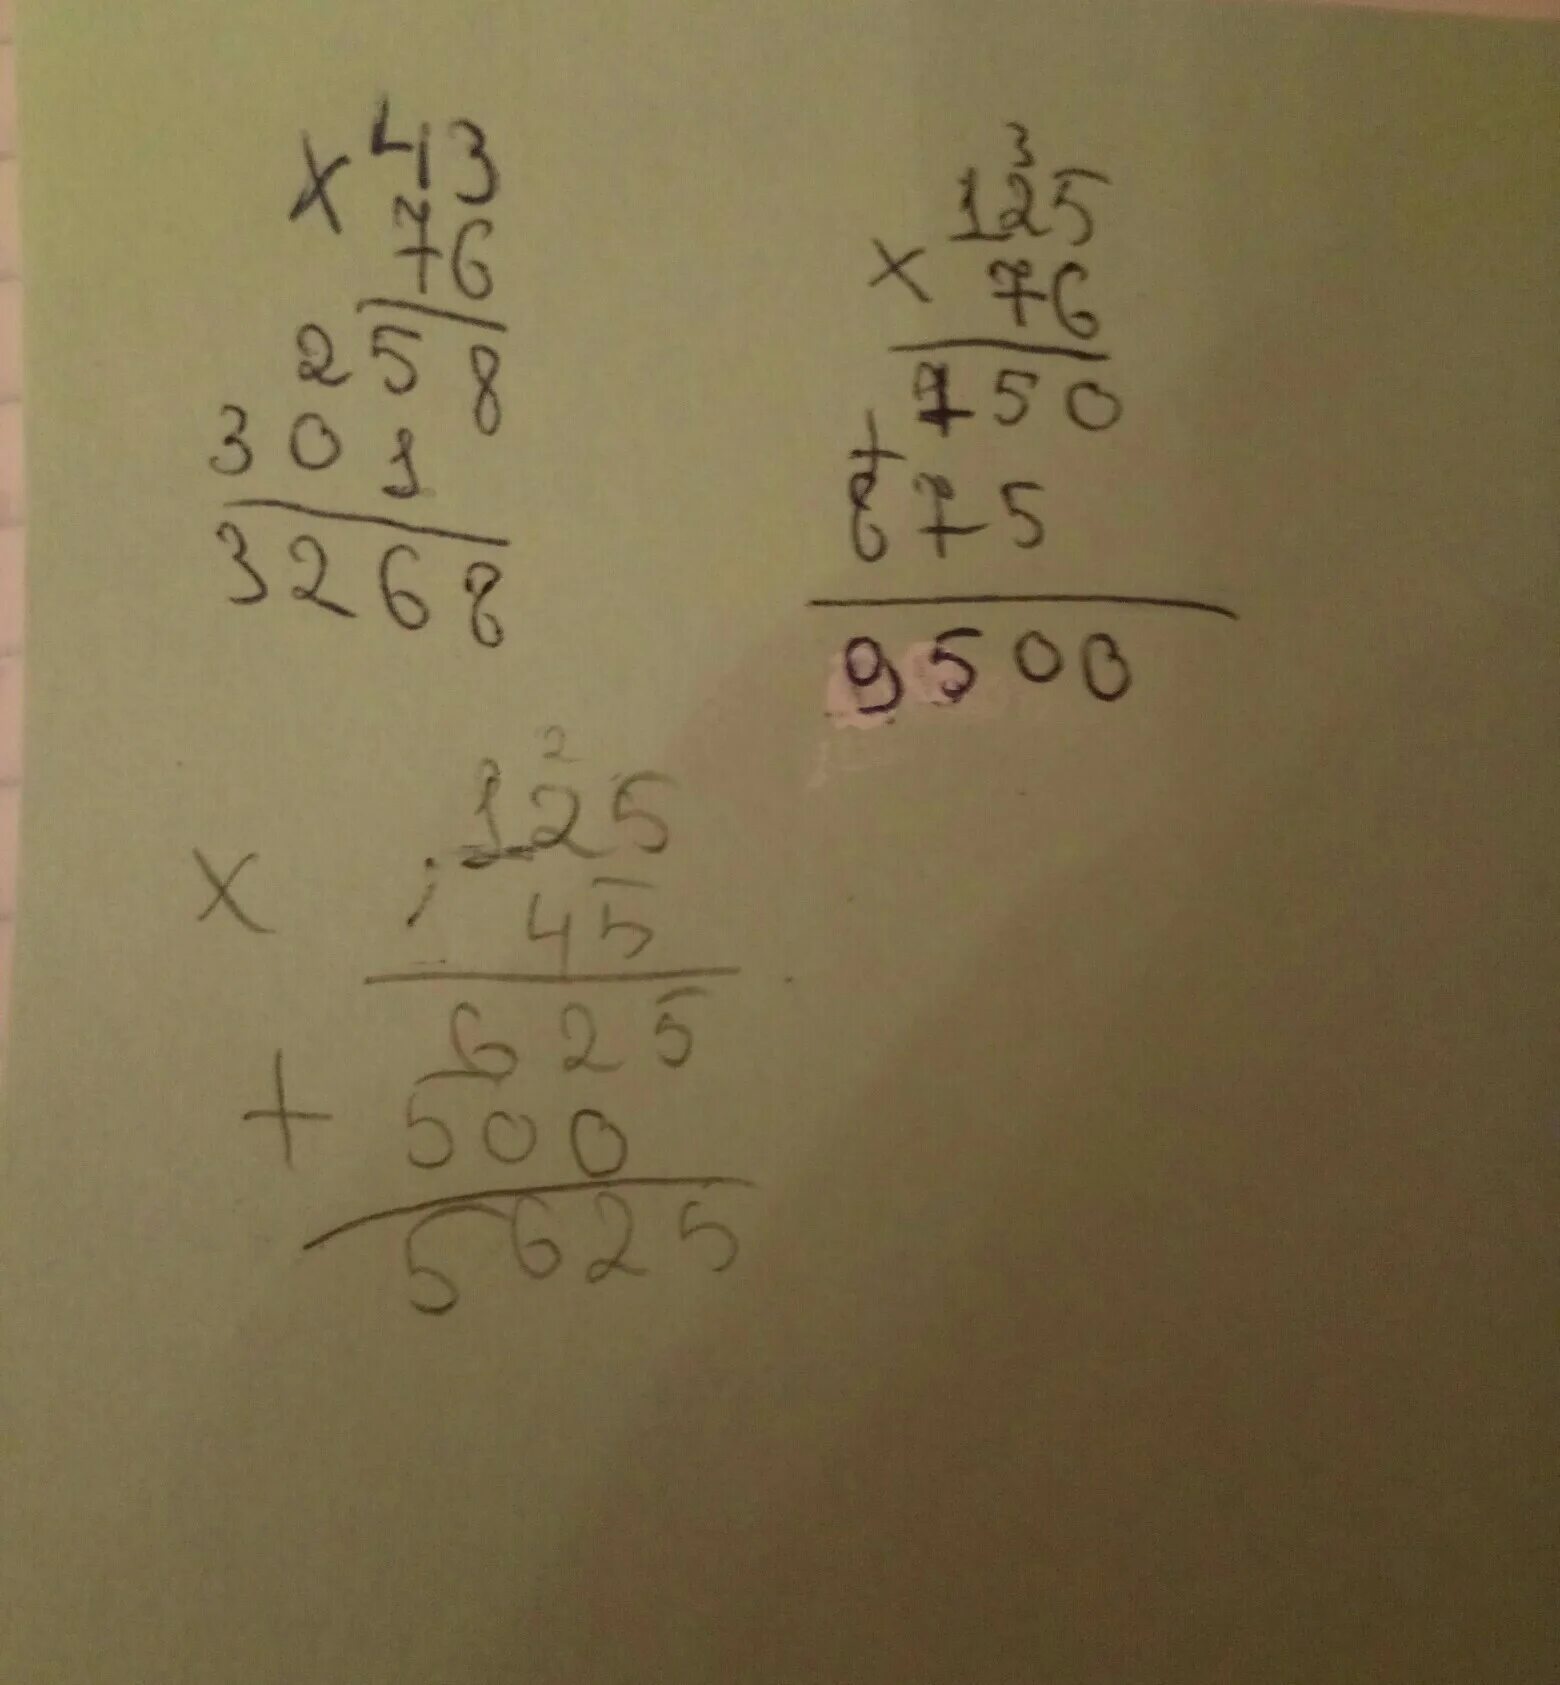 × 43
76
258
301
3268
3
125
× 76
750
1
875
9500
2
125
× 45
625
+ 500
5625